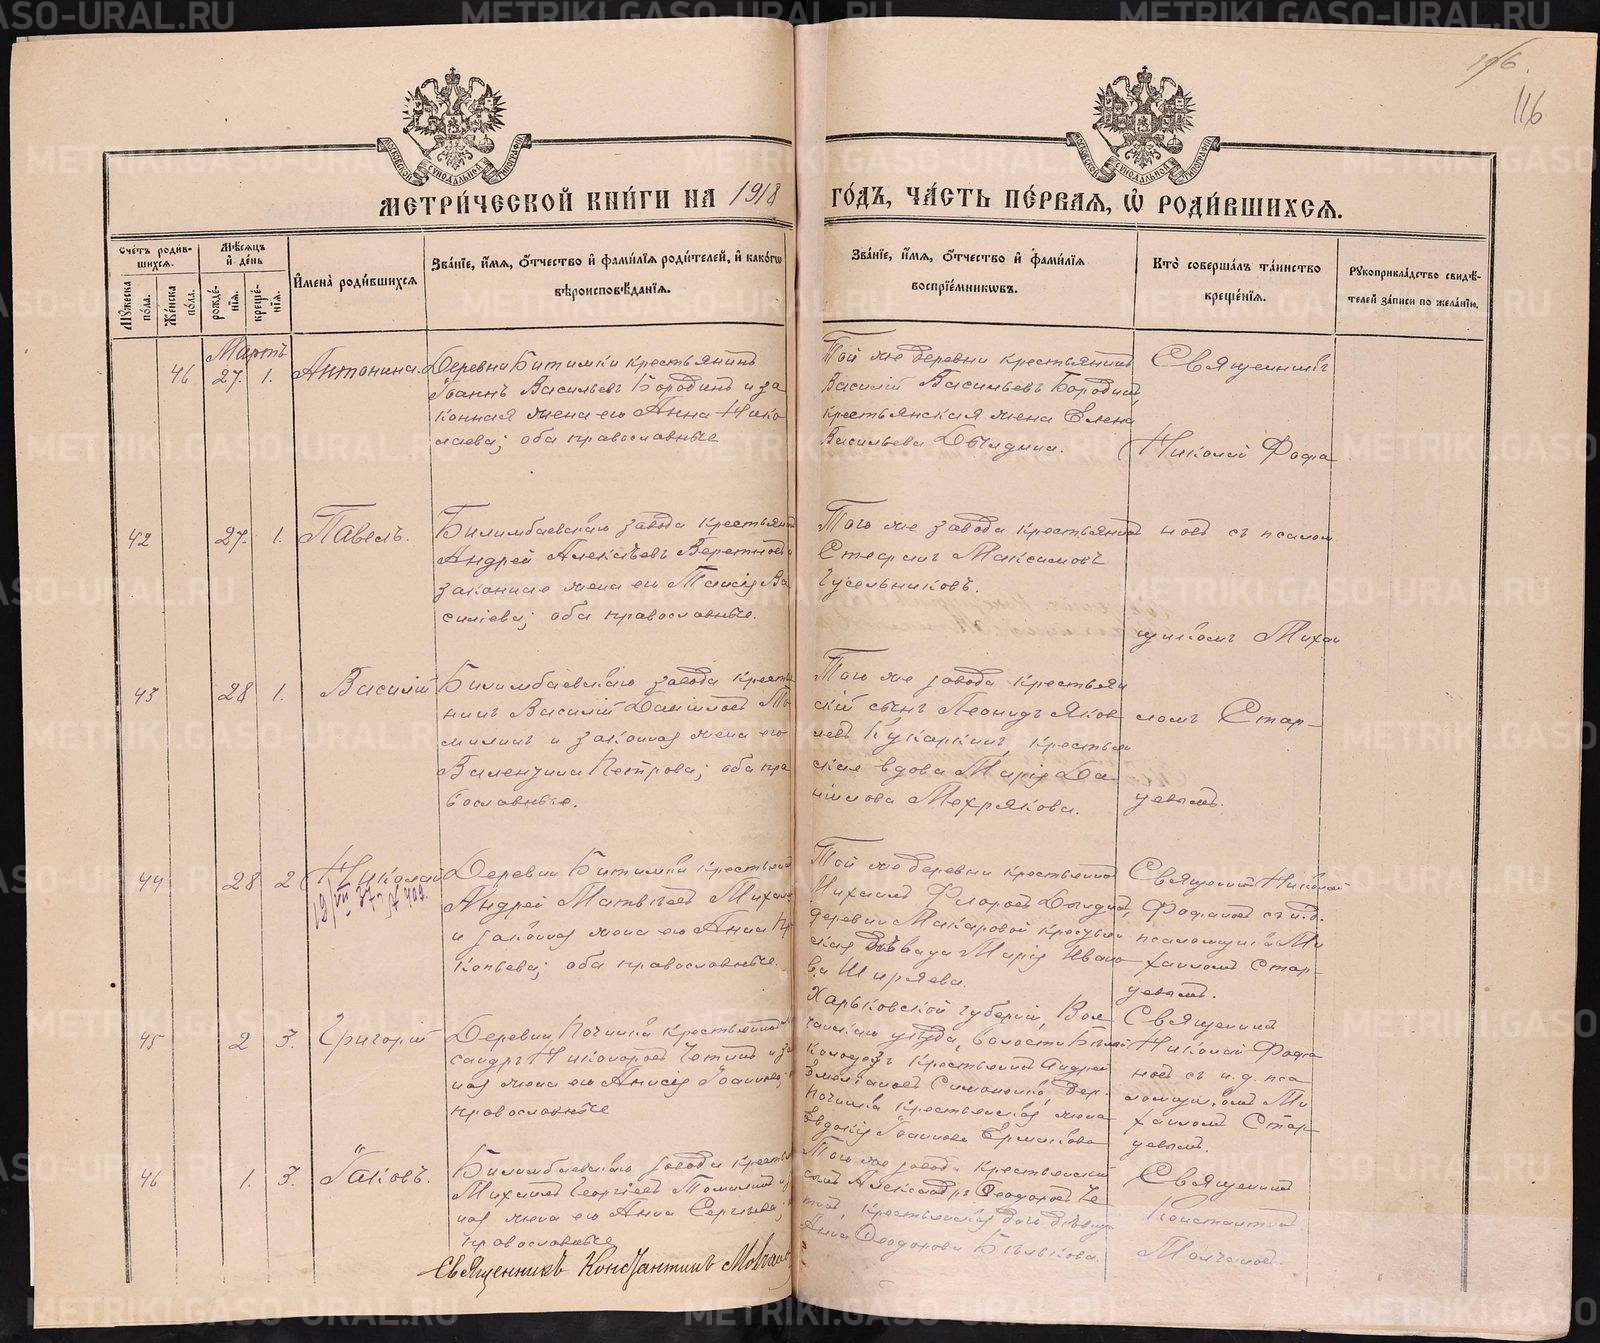 116
МЕТРИЧЕСКОЙ КНИГИ НА 1918 ГОДЪ, ЧАСТЬ ПЕРВАЯ, Ѡ РОДИВШИХСЯ.
Счетъ родившихся.
Мужеска пола.
Женска пола.
Мѣсяцъ и день
рожденія.
крещенія.
Имена родившихся
Званіе, имя, отчество и фамилія родителей, и какогѡ вѣроисповѣданія.
Званіе, имя, отчество и фамилія воспріемникѡвъ.
Кто совершалъ таинство крещенія.
Рукоприкладство свидѣтелей записи по желанію.
Мартъ
46 27. 1. Антонина.
Деревни Битимки крестьянинъ
Іоаннъ Васильевъ Бородинъ и за
конная жена его Анна Нико
лаева; оба православные
Той же деревни крестьянинъ
Василій Васильевъ Бородинъ,
крестьянская жена Елена
Васильева Дылдина.
Священникъ
Николай Фофа
42 27. 1. Павелъ.
Билимбаевскаго завода крестьянинъ
Андрей Алексѣевъ
законная жена его Таисія Ва
силіева; оба православные.
Того же завода крестьянинъ
Стефанъ Максимовъ
Гусельниковъ.
новъ съ псалом
щикомъ Михаи
43 28 1. Василій
Билимбаевскаго завода крестья
нинъ Василій Даниловъ По
милинъ и законная жена его
Валентина Петрова; оба пра
вославные.
Того же завода крестьян
скій сынъ Леонидъ Яков
левъ Кукаркинъ, крестьян
ская вдова Марія Да
нилова Мехрякова.
ломъ Стар-
цевымъ.
44 28 2 Николай
Деревни Битимки крестьянинъ
Андрей Матвѣевъ
и законная жена его Анна Пр
копьева; оба православные.
Той же деревни крестьянинъ
Михаилъ Дылдинъ,
деревни Макаровой крестьян
ская Марія Ивано
ва Ширяева.
Священникъ Николай
Фофановъ съ и.д.
псаломщика Ми
хаиломъ Стар-
цевымъ.
45 2 3. Григорій
Деревни Починка крестьянинъ
сандръ Никифоровъ
ная жена его Анисія Іоаннова;
православные
Харьковской губерніи, Вол
чанскаго уѣзда, волости Бѣлый
Колодезь крестьянинъ Андрей
Емельяновъ Симоненко, дер.
Починка крестьянская жена
Евдокія Іоаннова Ермакова
Священникъ
Николай Фофа
новъ съ и.д. пса
ломщикомъ Ми
хаиломъ Стар-
цевымъ.
46 1. 3. Іаковъ.
Билимбаевскаго завода крестьян
Михаилъ Георгіевъ Помилинъ
ная жена его Анна Сергѣева;
православные
Того же завода крестьянскій
сынъ Александръ Ѳеодоровъ Че
крестьянская дочь дѣвица
Анна Ѳеодорова
Священникъ
Константинъ
Молчановъ
Священникъ Константинъ Молчановъ
METRIKI.GASO-URAL.RU